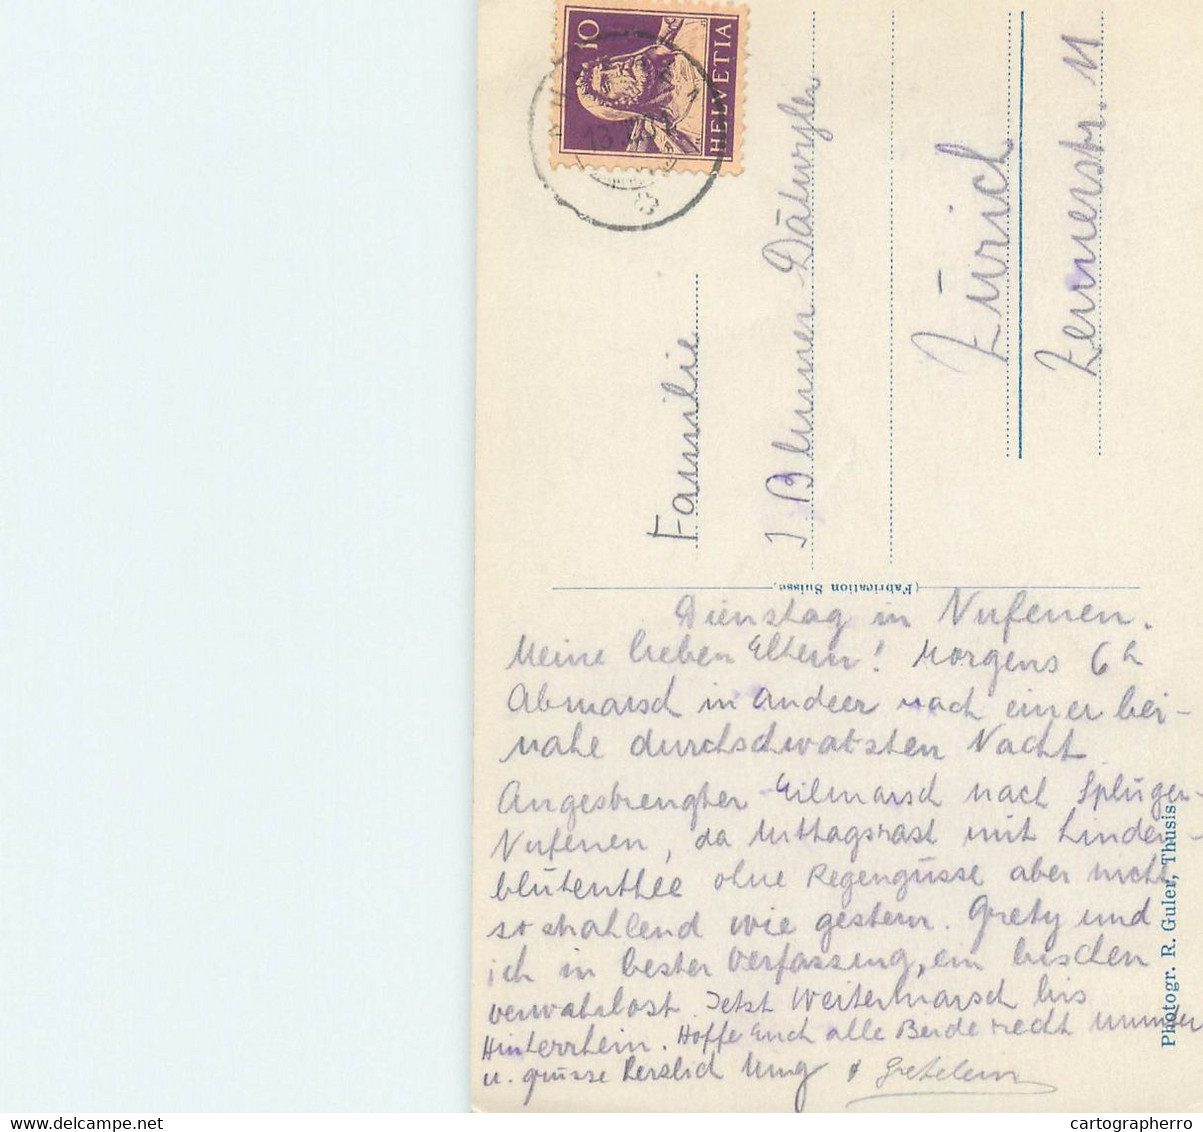 10
HELVETIA
Familie
J. Blumer Dätwyler
Zürich
11
(Fabrication Suisse)
Dienstag in Nufenen.
Meine lieben Eltern! Morgens 6 h
Abmarsch in Andeer nach einer bei-
nahe durchschwatzten Nacht
Angestrengter Eilmarsch nach Splügen-
Nufenen, da Mittagsrast mit Linden-
blütenthee ohne Regengüsse aber nicht
so strahlend wie gestern. Grety und
ich in bester Verfassung, ein bischen
verwahrlost. Jetzt Weitermarsch bis
Hinterrhein. Hoffe Euch alle Beide recht munter
u. grüsse herzlich
Photogr. R. Guler, Thusis
cartographerro